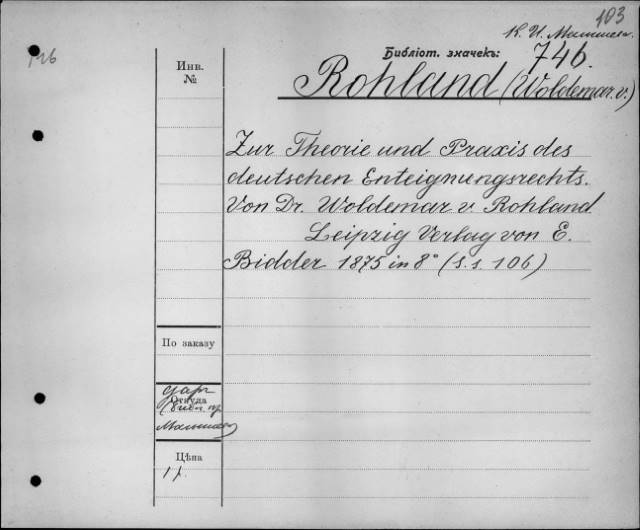 103
К. И. Малышев.
Библіот. значекъ: 746.
Инв.
№
Rohland (Woldemar. v.)
Zur Theorie und Praxis des
deutschen Enteignungsrechts.
Von Dr. Woldemar v. Rohland
Leipzig Verlag von E.
Bidder 1875 in 8° (S.s. 106)
По заказу
Откуда
даръ
Малышева
Цѣна
1 р.